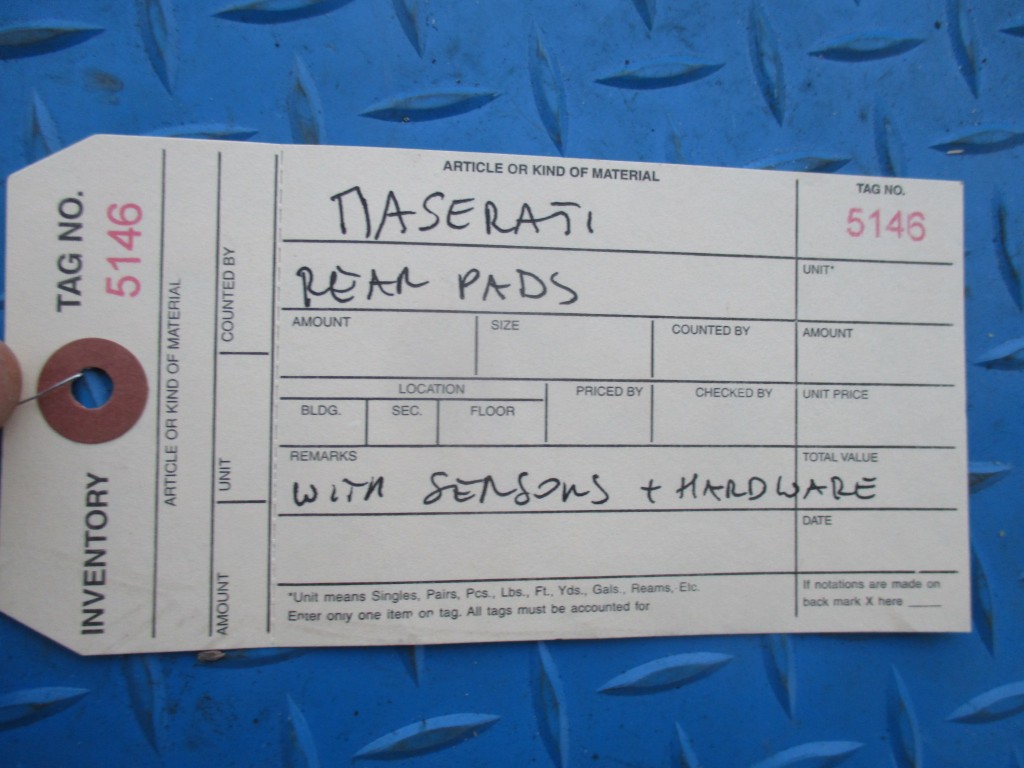 TAG NO.
5146
INVENTORY
ARTICLE OR KIND OF MATERIAL
COUNTED BY
UNIT
AMOUNT
ARTICLE OR KIND OF MATERIAL
MASERATI
TAG NO.
5146
REAR PADS
UNIT*
AMOUNT SIZE COUNTED BY AMOUNT
LOCATION PRICED BY CHECKED BY UNIT PRICE
BLDG. SEC. FLOOR
REMARKS TOTAL VALUE
WITH SENSORS + HARDWARE
DATE
*Unit means Singles, Pairs, Pcs., Lbs., Ft., Yds., Gals., Reams, Etc.
Enter only one item on tag. All tags must be accounted for
If notations are made on
back mark X here ____